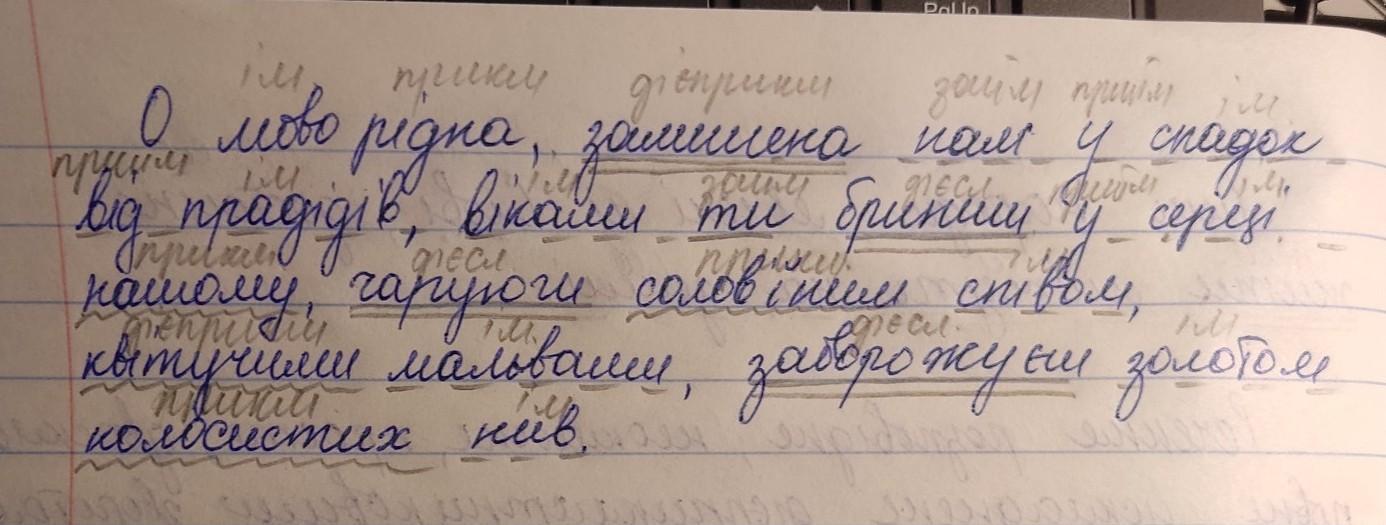 PgUp
ім прикм дієприкм займ прийм ім.
О мово рідна, залишена нам у спадок
прийм ім ім займ дієсл прийм ім.
від прадідів, віками ти бриниш у серці
прикм. дієсл прикм. ім
нашому, чаруючи солов'їним співом,
дієприкм ім. дієсл. ім
квітучими мальвами, заворожуєш золотом
прикм ім
колосистих нив.